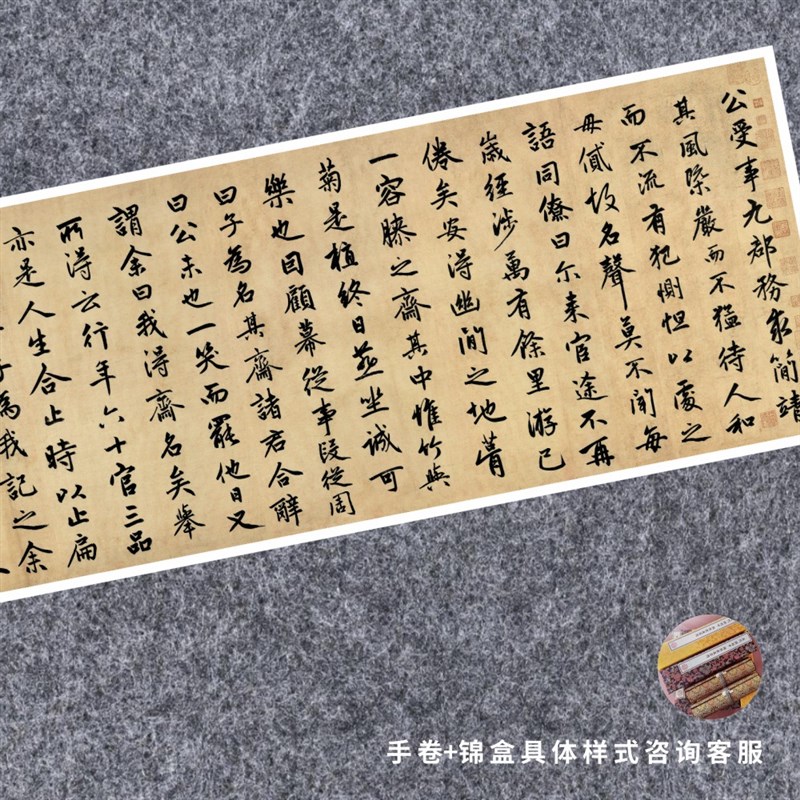 公受事九郡務求簡靖
其風槩嚴而不猛待人和
而不流有犯惻怛以處之
毋貳故名聲莫不聞每
語同僚曰尔来官途不再
歲經涉萬有餘里游已
倦矣安得幽閒之地葺
一容膝之齋其中惟竹與
菊是植終日燕坐誠可
樂也因顧幕從事段從周
曰子為名其齋諸君合辭
曰公未也一笑而罷他日又
謂余曰我得齋名矣舉
所得云行年六十官三品
亦是人生合止時以止扁
子為我記之余
手卷+锦盒具体样式咨询客服